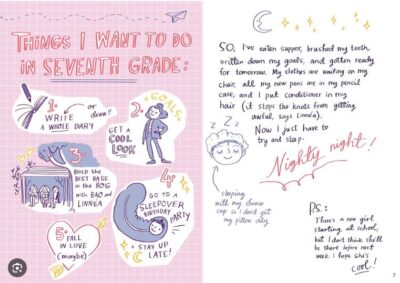 THINGS I WANT TO DO
IN SEVENTH GRADE:
1. WRITE
A WHOLE DIARY
or draw!!
2. GOALS:
GET A
COOL
LOOK
3.
BUILD THE
BEST BASE
in the BOG
WITH BAO and
LINNÉA
4.
GO TO A
SLEEPOVER
BIRTHDAY
PARTY
+ STAY UP
LATE!
5. FALL
IN LOVE
(maybe)
SO, I've eaten supper, brushed my teeth,
written down my goals, and gotten ready
for tomorrow. My clothes are waiting on my
chair, all my new pens are in my pencil
case, and I put conditioner in my
hair (it stops the knots from getting
awful, says Linnéa).
Now I just have to
try and sleep.
Z Z Z
Nighty night!
sleeping
with my shower
cap so I don't get
my pillow oily
P.S.:
There's a new girl
starting at school,
but I don't think she'll
be there before next
week. I hope she's
cool!
7